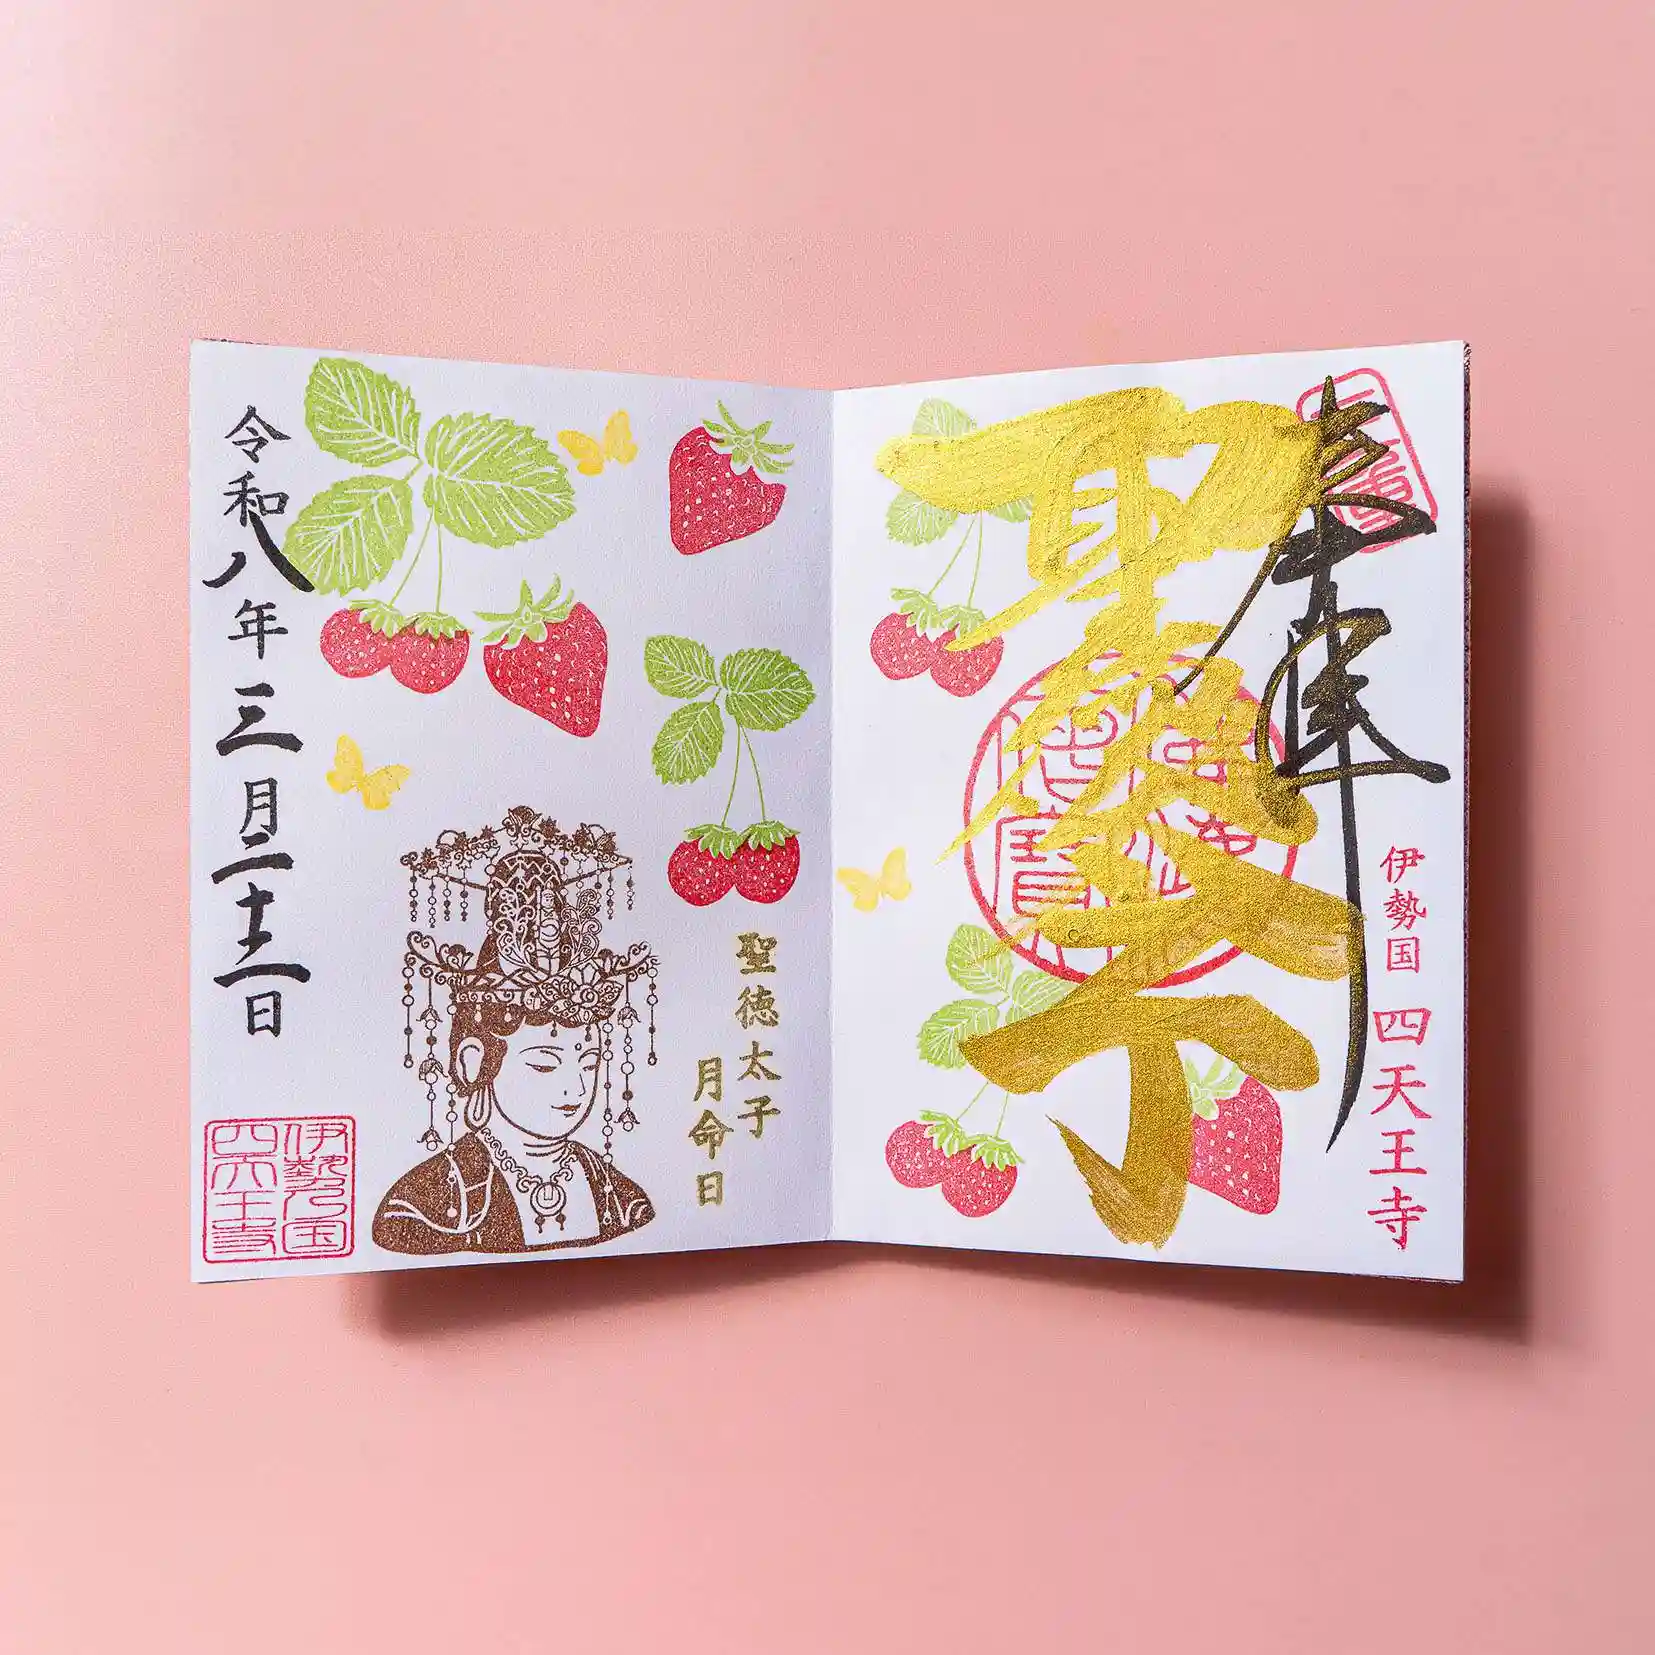 奉拝
伊勢国 四天王寺
聖徳太子
聖徳太子
月命日
令和八年三月二十二日
伊勢国
四天王寺